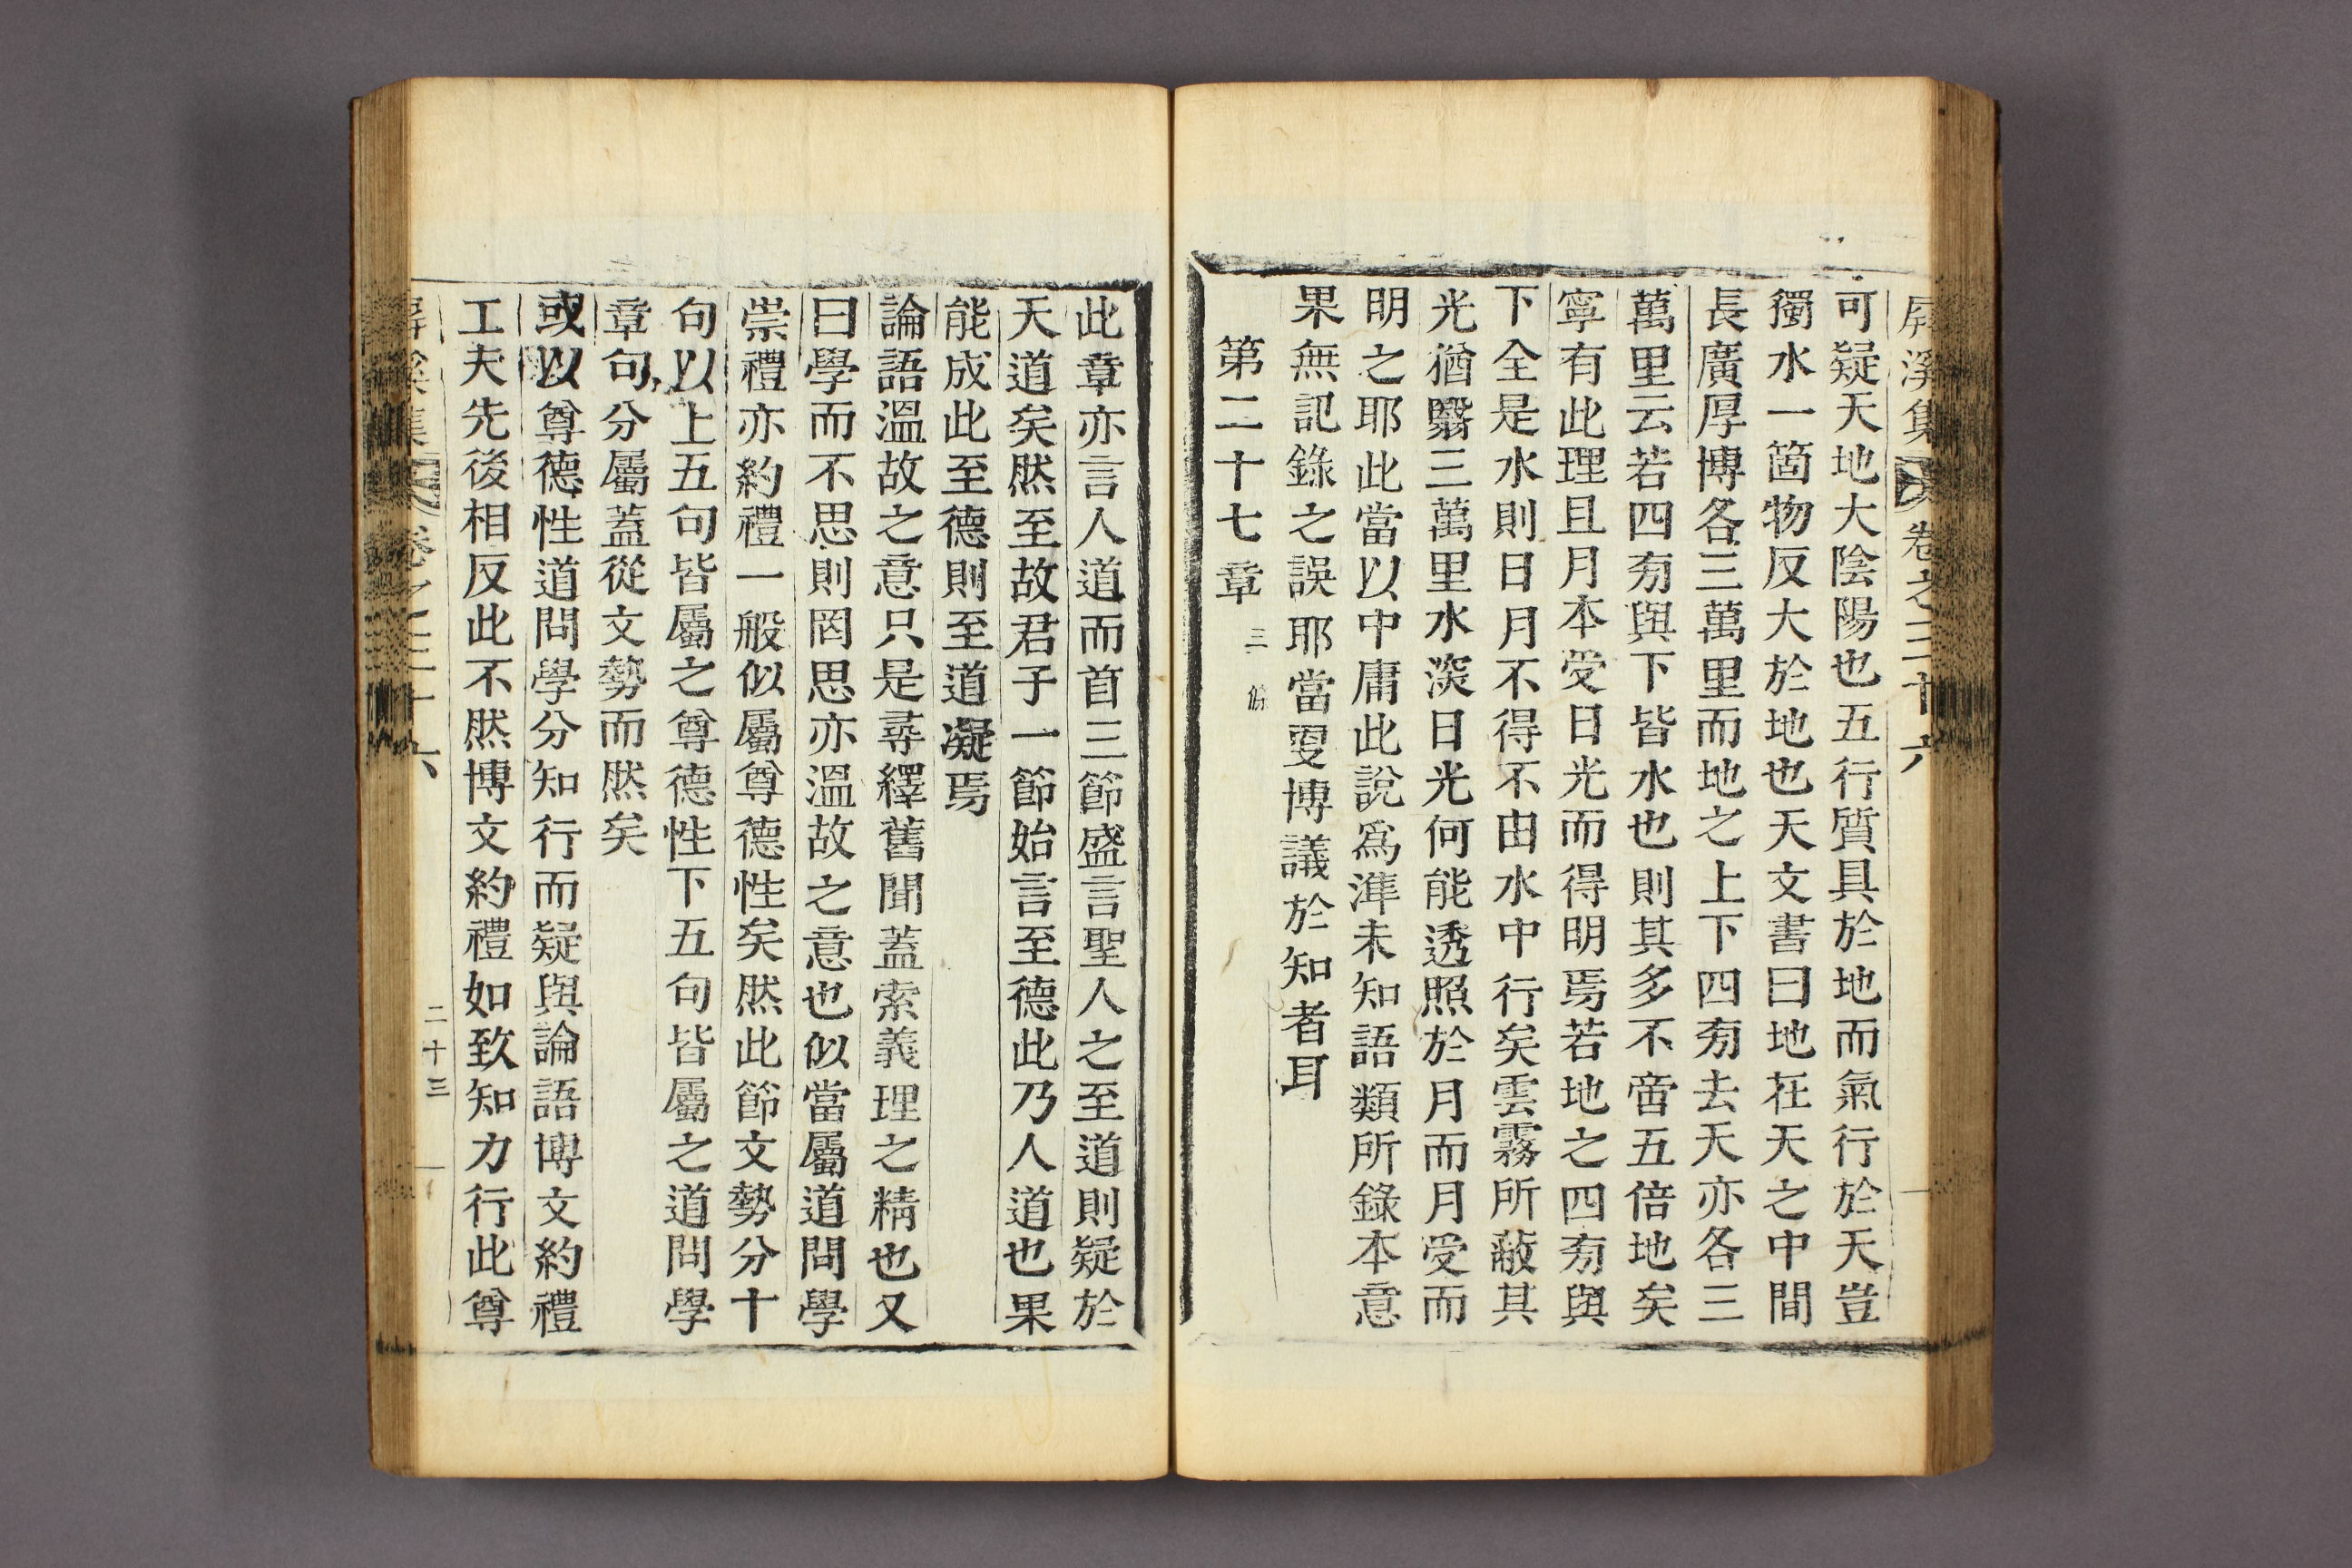 屏溪集 卷之三十六
可疑天地大陰陽也五行質具於地而氣行於天豈
獨水一箇物反大於地也天文書曰地在天之中間
長廣厚博各三萬里而地之上下四旁去天亦各三
萬里云若四旁與下皆水也則其多不啻五倍地矣
寧有此理且月本受日光而得明焉若地之四旁與
下全是水則日月不得不由水中行矣雲霧所蔽其
光猶翳三萬里水深日光何能透照於月而月受而
明之耶此當以中庸此說爲準未知語類所錄本意
果無記錄之誤耶當更博議於知者耳
第二十七章 三條
此章亦言人道而首三節盛言聖人之至道則疑於
天道矣然至故君子一節始言至德此乃人道也果
能成此至德則至道凝焉
論語溫故之意只是尋繹舊聞蓋索義理之精也又
曰學而不思則罔思亦溫故之意也似當屬道問學
崇禮亦約禮一般似屬尊德性矣然此節文勢分十
句以上五句皆屬之尊德性下五句皆屬之道問學
章句分屬蓋從文勢而然矣
或以尊德性道問學分知行而疑與論語博文約禮
工夫先後相反此不然博文約禮如致知力行此尊
屏溪集 卷之三十六 二十三